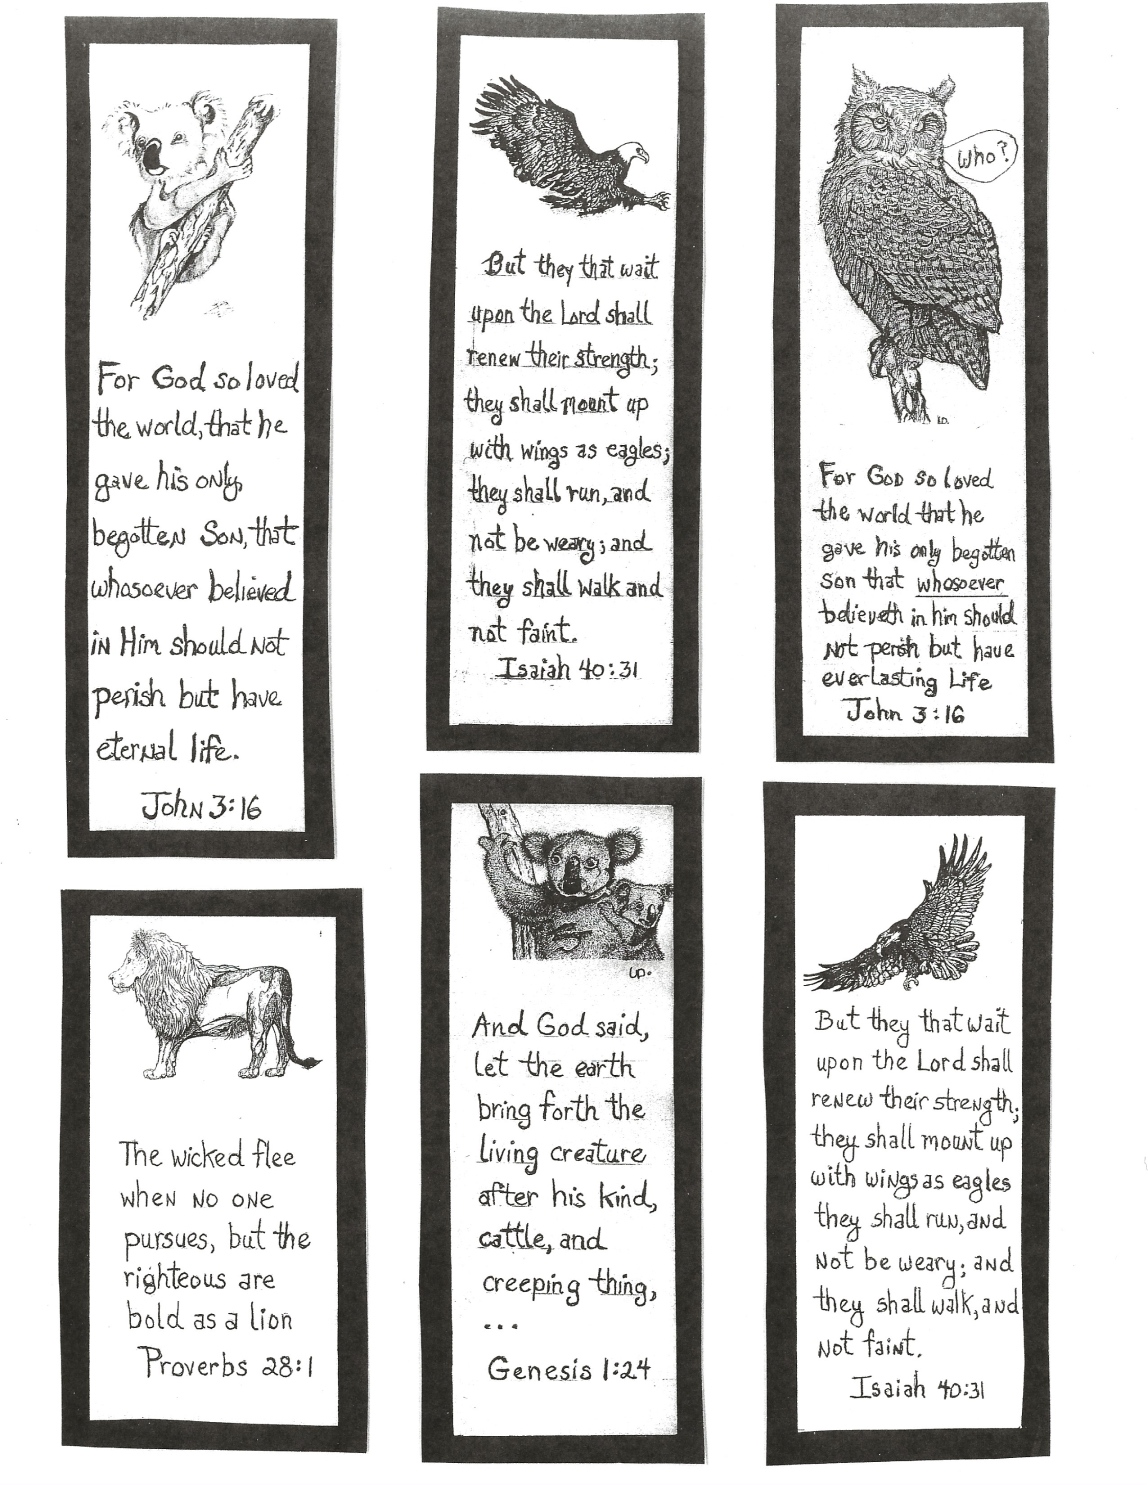 For God so loved
the world, that he
gave his only
begotten Son, that
whosoever believed
in Him should not
perish but have
eternal life.
John 3:16
But they that wait
upon the Lord shall
renew their strength;
they shall mount up
with wings as eagles;
they shall run, and
not be weary; and
they shall walk and
not faint.
Isaiah 40:31
Who?
For God so loved
the world that he
gave his only begotten
Son that whosoever
believeth in him should
not perish but have
everlasting Life
John 3:16
The wicked flee
when no one
pursues, but the
righteous are
bold as a lion
Proverbs 28:1
And God said,
let the earth
bring forth the
living creature
after his kind,
cattle, and
creeping thing,
...
Genesis 1:24
But they that wait
upon the Lord shall
renew their strength;
they shall mount up
with wings as eagles
they shall run, and
not be weary; and
they shall walk, and
not faint.
Isaiah 40:31